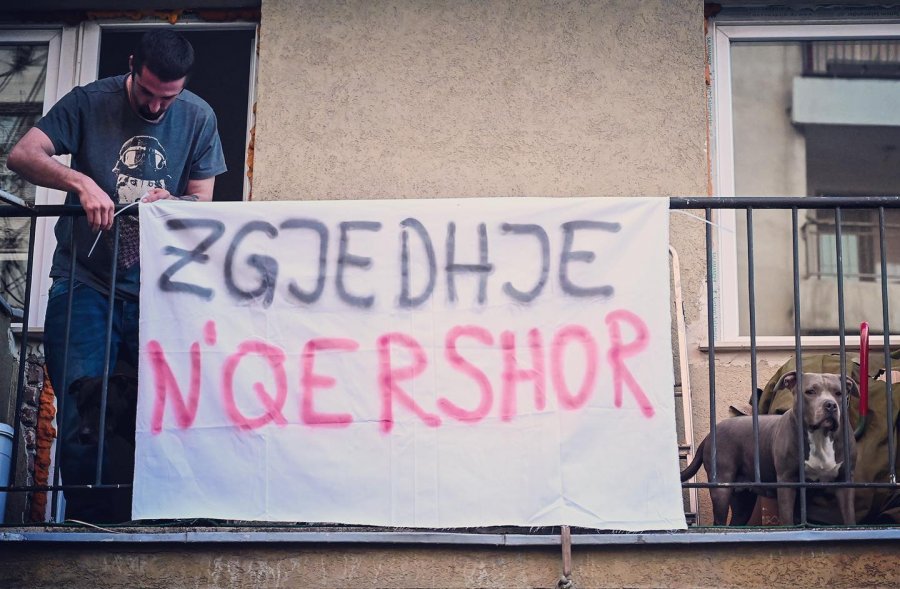 ZGJEDHJE
N'QERSHOR